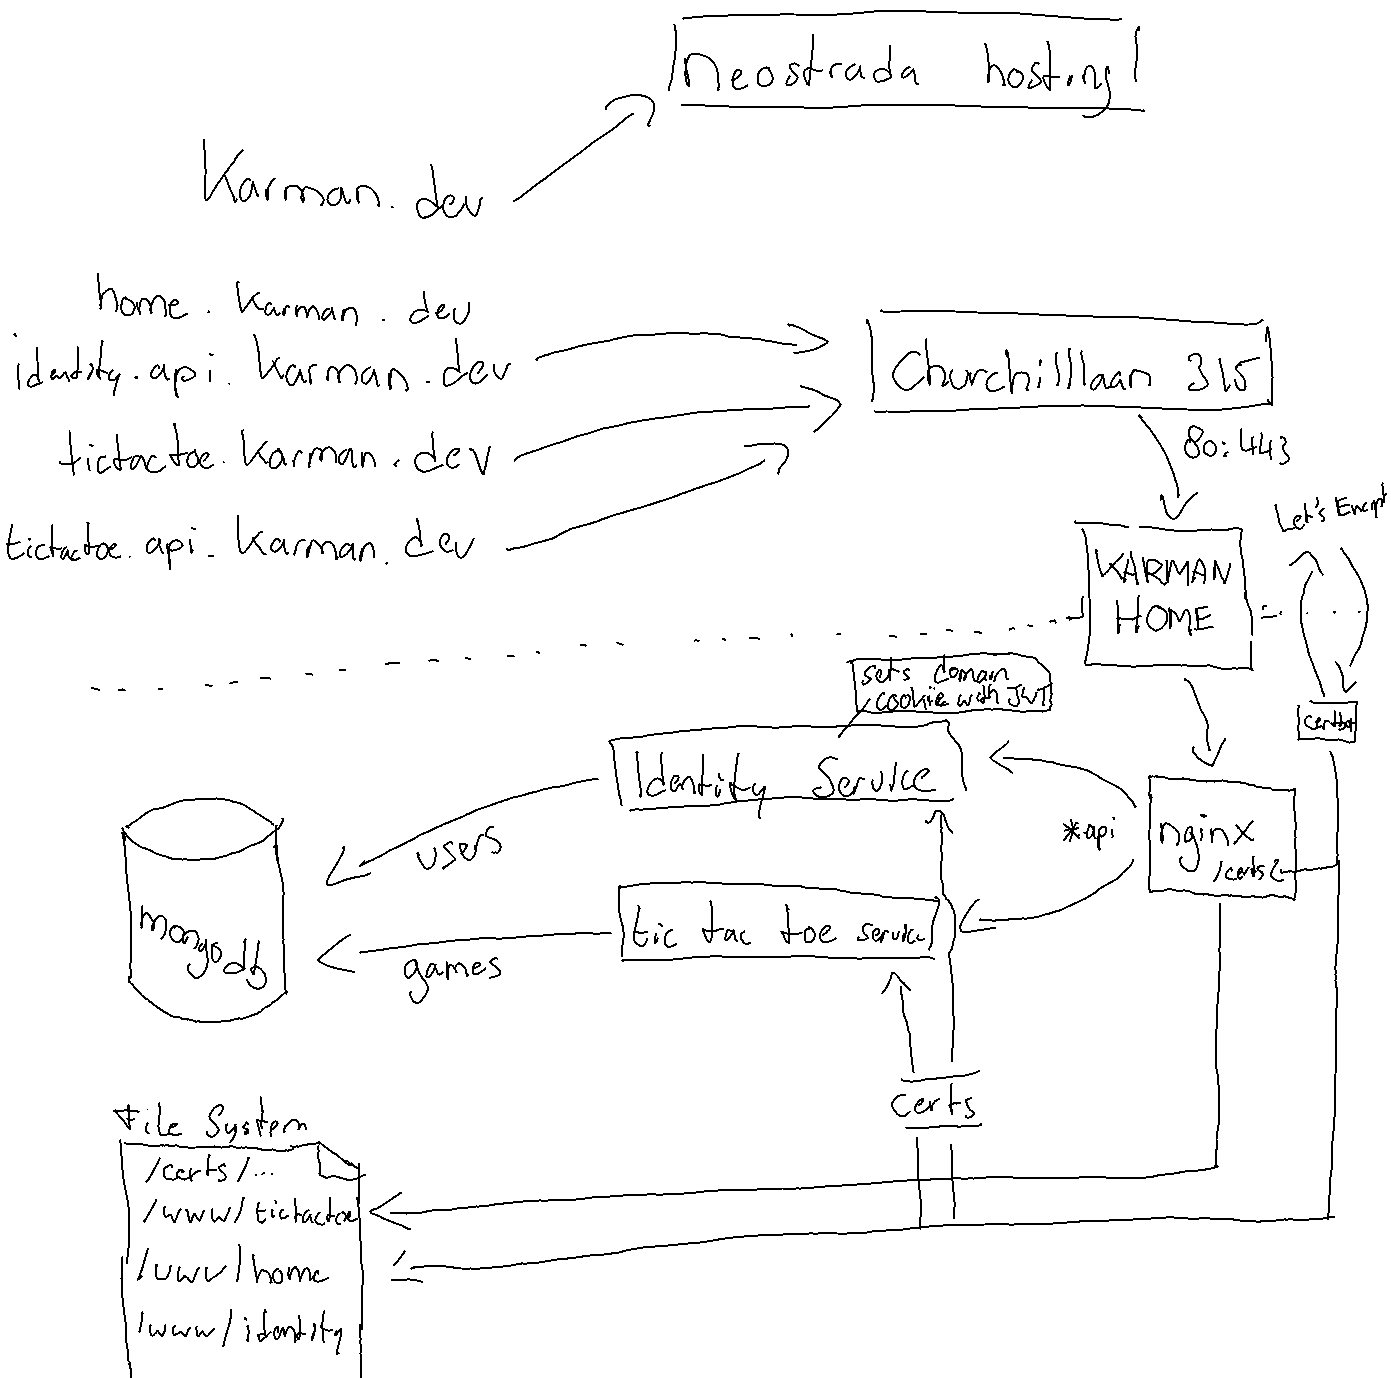 neostrada hosting
Karman.dev
home.karman.dev
identity.api.karman.dev
tictactoe.karman.dev
tictactoe.api.karman.dev
Churchilllaan 315
80:443
Let's Encrypt
KARMAN
HOME
certbot
sets domain
cookie with JWT
Identity Service
users
*api
nginx
/certs
mongodb
tic tac toe service
games
certs
File System
/certs/...
/www/tictactoe
/www/home
/www/identity